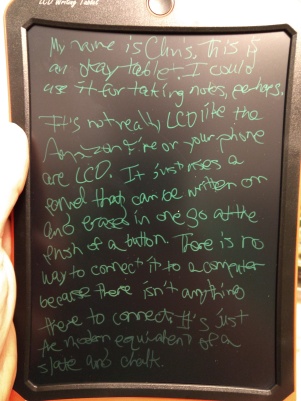 LCD Writing Tablet
My name is Chris, This is
an okay tablet. I could
use it for taking notes, perhaps.
It's not really LCD like the
Amazon Fire or your phone
are LCD. It just uses a
panel that can be written on
and erases in one go at the
push of a button. There is no
way to connect it to a computer
because there isn't anything
there to connect. It's just
the modern equivalent of a
slate and chalk.